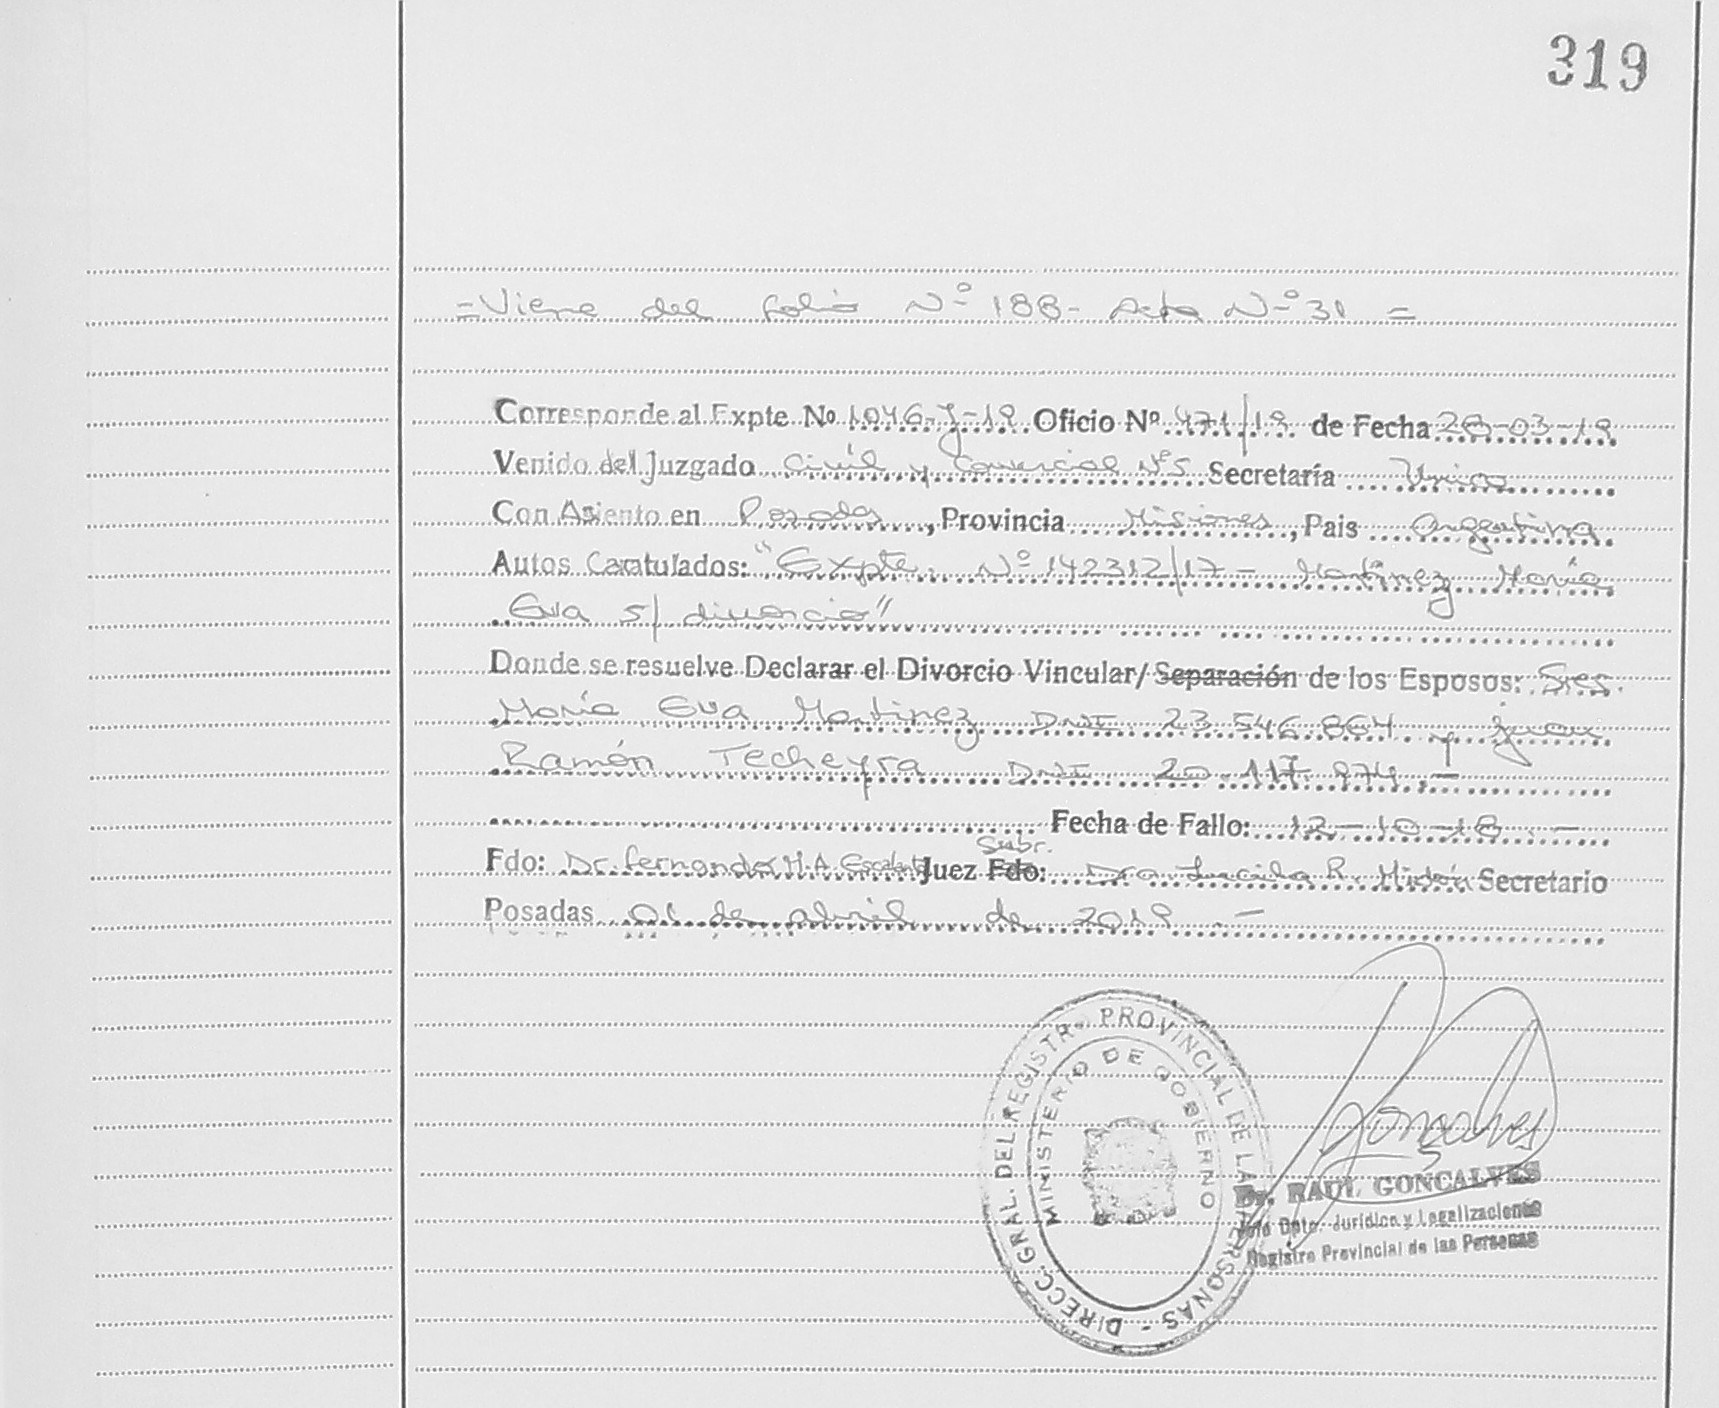 319
=Viene del folio Nº 188- Acta Nº 31 =
Corresponde al Expte Nº 1046-J-19 Oficio Nº 471/19 de Fecha 28-03-19
Venido del Juzgado Civil y Comercial Nº5 Secretaría Unica
Con Asiento en Posadas, Provincia Misiones, Pais Argentina
Autos Caratulados: "Expte. Nº 142312/17 - Martinez María
Eva s/ divorcio"
Donde se resuelve Declarar el Divorcio Vincular/ Separación de los Esposos: Sres.
María Eva Martinez DNI 23.546.864 y Juan
Ramón Techeyra DNI 20.117.974.-
Fecha de Fallo: 12-10-18.-
Subr.
Fdo: Dr. Fernando M.A. Escalante Juez Fdo: Dra Lucila R. Midón Secretario
Posadas 01 de abril de 2019.-
DIRECC. GRAL. DEL REGISTRO PROVINCIAL DE LAS PERSONAS -
MINISTERIO DE GOBIERNO
Gonsalves
Dr. RAUL GONCALVES
Jefe Dpto. Jurídico y Legalizaciones
Registro Provincial de las Personas